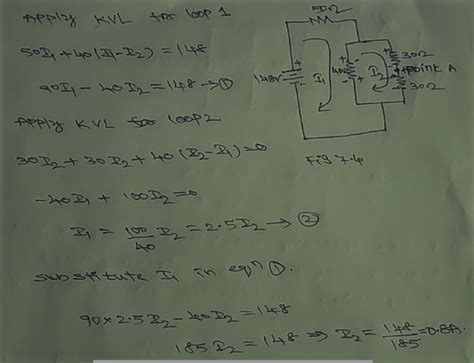 Apply KVL for loop 1
50I₁ + 40(I₁-I₂) = 148
90I₁ - 40I₂ = 148 → ①
Apply KVL for loop 2
30I₂ + 30I₂ + 40(I₂-I₁) = 0
-40I₁ + 100I₂ = 0
I₁ = 100/40 I₂ = 2.5I₂ → ②
substitute I₁ in eqn ①.
90×2.5I₂ - 40I₂ = 148
185I₂ = 148 ⇒ I₂ = 148/185 = 0.8A.
50Ω
148V
I₁
40Ω
I₂
30Ω
point A
30Ω
Fig 7.4